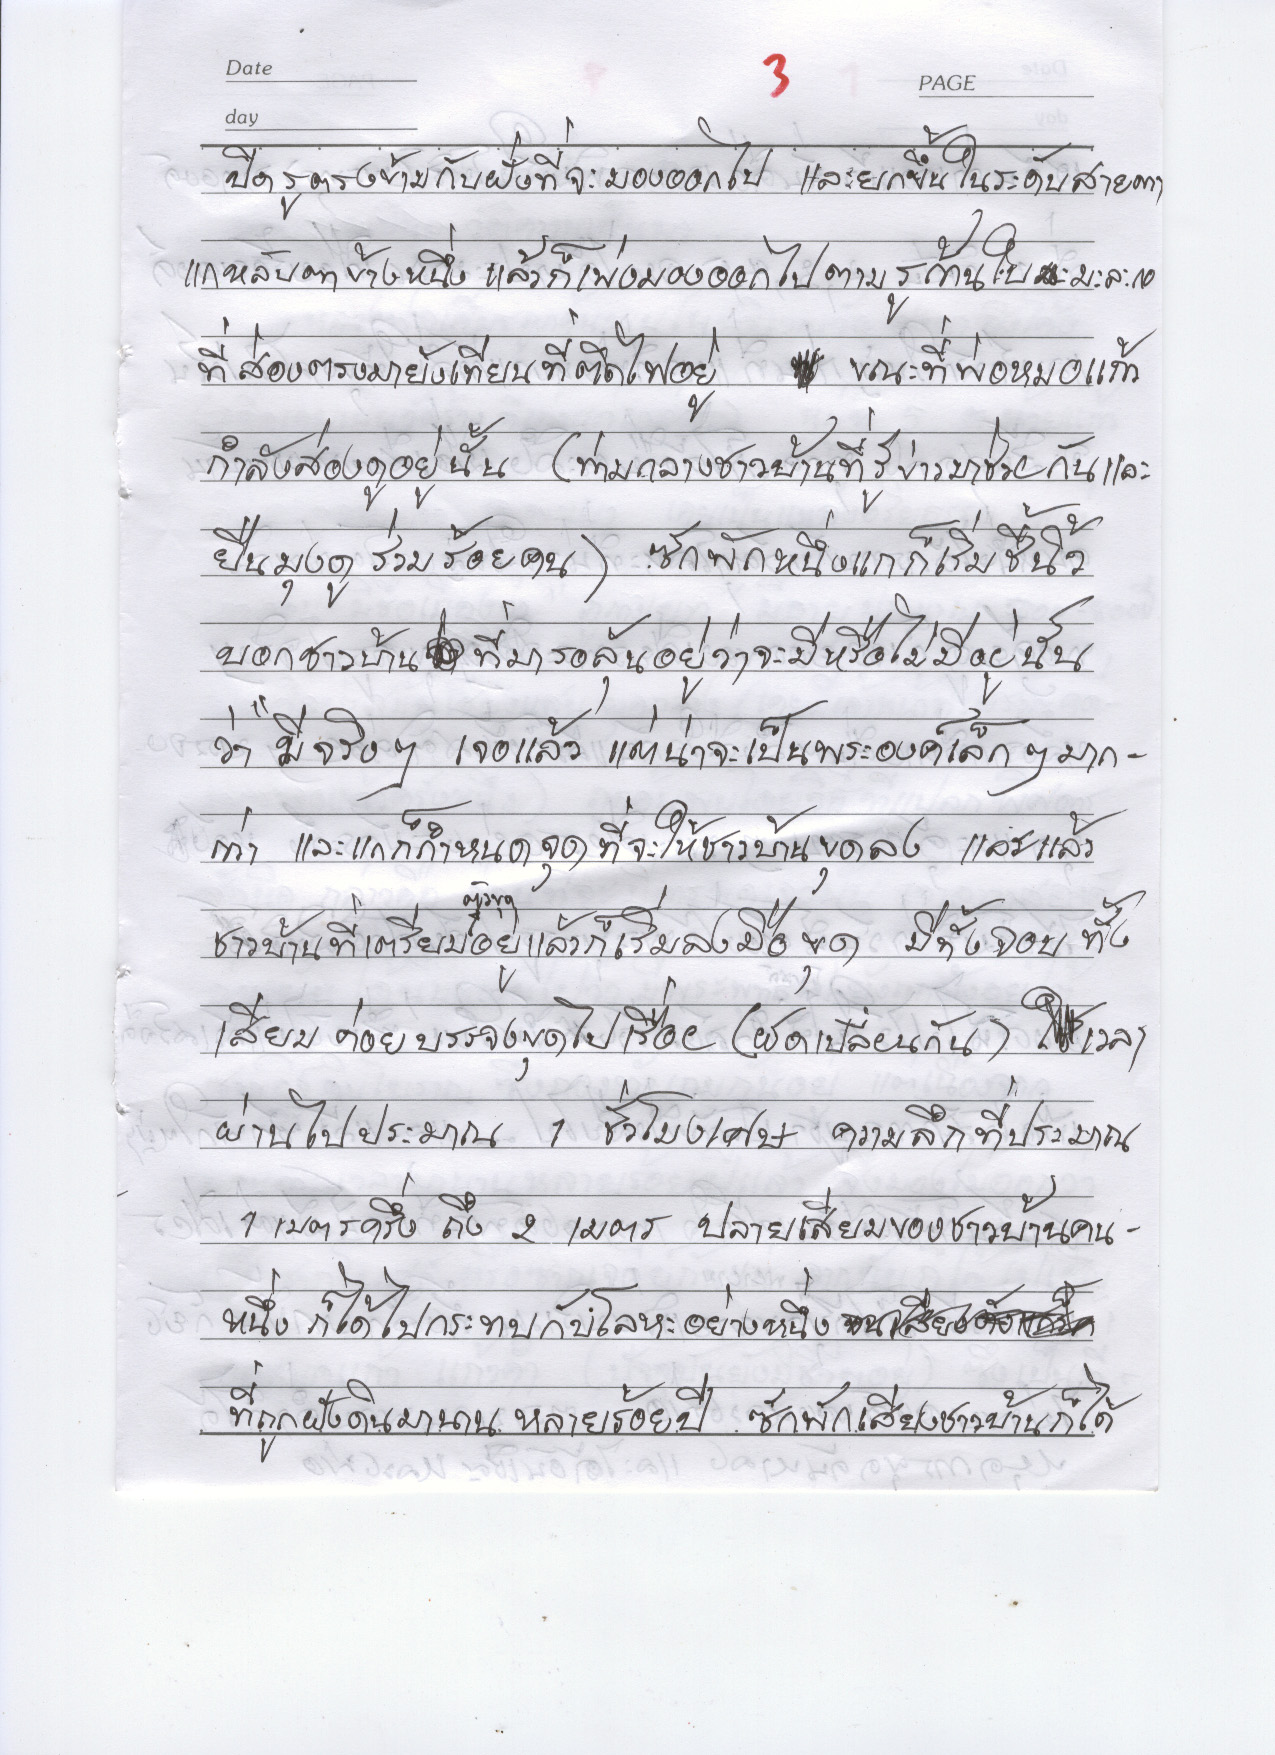 Date
3
PAGE
day
ปิดรูตรงข้ามกับฝั่งที่จะมองออกไป และยกขึ้นในระดับสายตา
แกหลับตาข้างหนึ่ง แล้วก็เพ่งมองออกไปตามรูก้านใบมะละกอ
ที่ส่องตรงมายังเทียนที่ติดไฟอยู่ ขณะที่พ่อหมอแก้ว
กำลังส่องดูอยู่นั้น (ท่ามกลางชาวบ้านที่รู้ข่าวมาช่วยกันและ
ยืนมุงดูร่วมร้อยคน) ซักพักหนึ่งแกก็เริ่มชี้นิ้ว
บอกชาวบ้าน ที่มารอลุ้นอยู่ว่าจะมีหรือไม่มีอยู่นั้น
ว่า "มีจริงๆ เจอแล้ว แต่น่าจะเป็นพระองค์เล็กๆ มาก-
กว่า และแกก็กำหนดจุดที่จะให้ชาวบ้านขุดลง แล้ว
ชาวบ้านที่เตรียมตัวขุดอยู่แล้วก็เริ่มลงมือขุด มีทั้งจอบ ทั้ง
เสียม ค่อยบรรจงขุดไปเรื่อย (ผลัดเปลี่ยนกัน) เวลา
ผ่านไปประมาณ 1 ชั่วโมงเศษ ความลึกที่ประมาณ
1 เมตรครึ่ง ถึง 2 เมตร ปลายเสียมของชาวบ้านคน-
หนึ่ง ก็ได้ไปกระทบกับโลหะอย่างหนึ่ง
ที่ถูกฝังดินมานาน หลายร้อยปี ซักพักเสียงชาวบ้านก็ได้